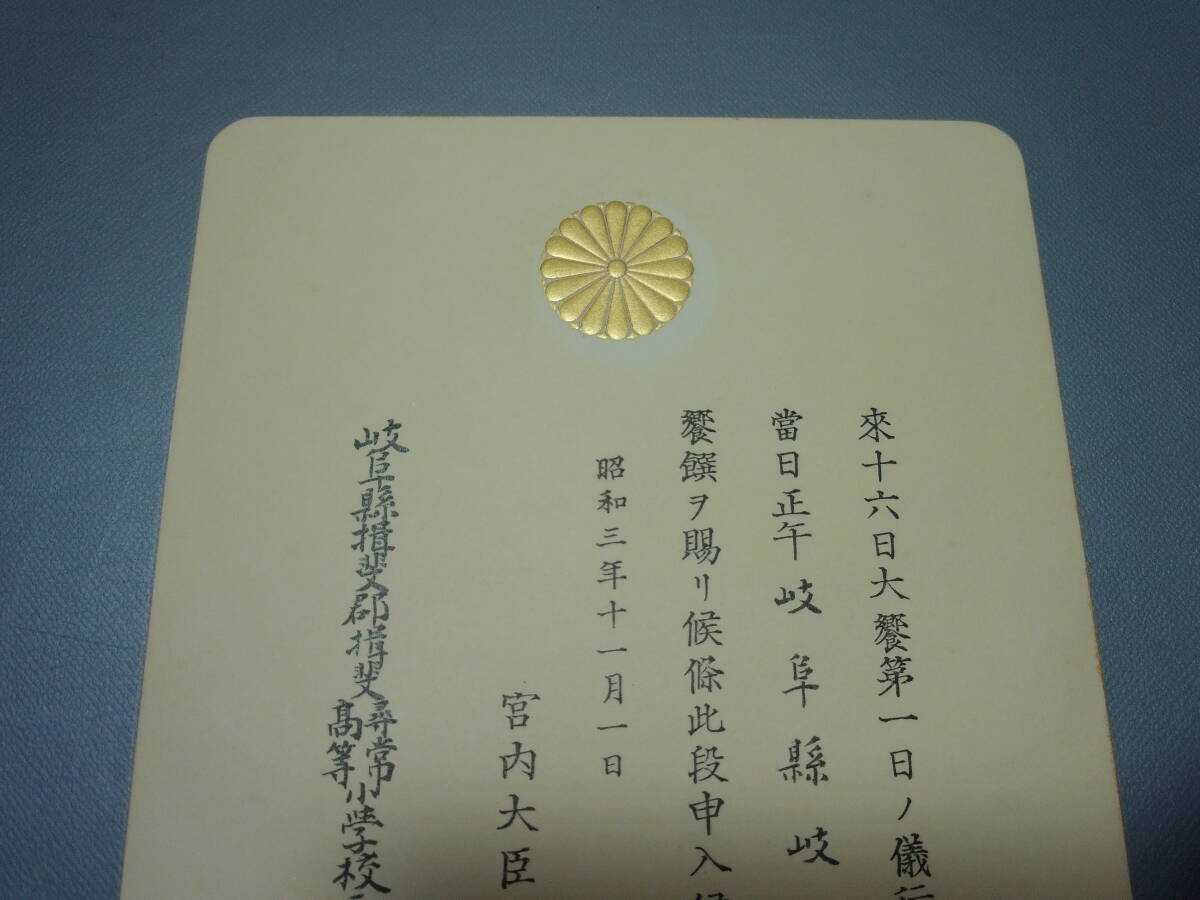 來十六日大饗第一日ノ儀行
當日正午岐阜縣岐
饗饌ヲ賜リ候條此段申入
昭和三年十一月一日
宮内大臣
岐阜縣揖斐郡揖斐尋常高等小學校